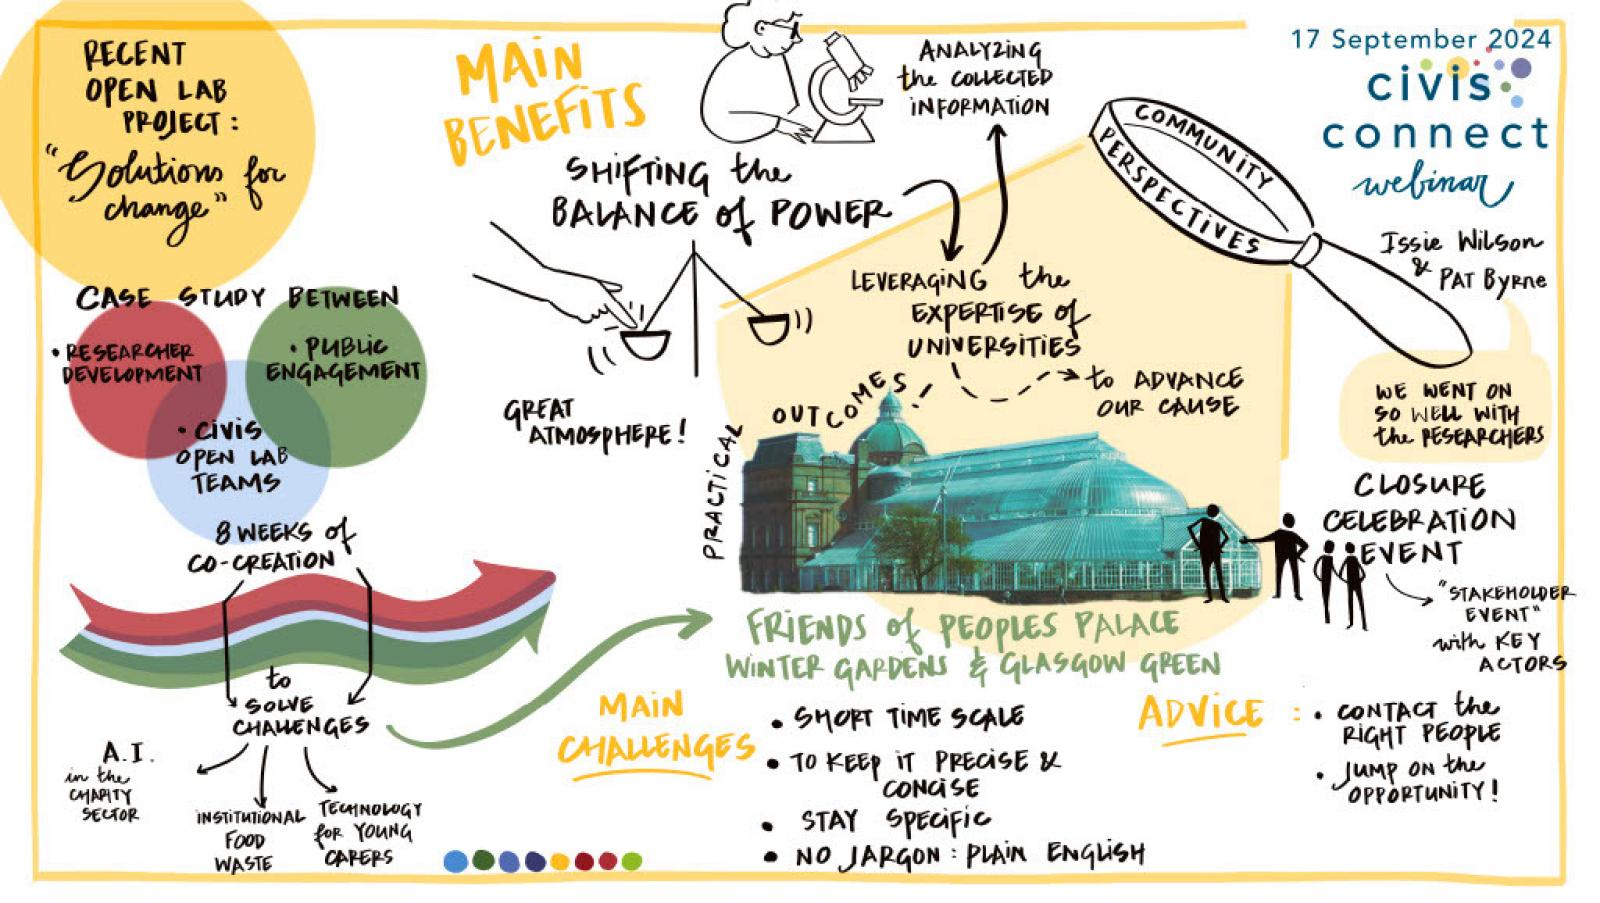 RECENT
OPEN LAB
PROJECT:
"Solutions for
change"
CASE STUDY BETWEEN
• RESEARCHER
DEVELOPMENT
• PUBLIC
ENGAGEMENT
• CIVIS
OPEN LAB
TEAMS
8 WEEKS of
CO-CREATION
to
SOLVE
CHALLENGES
A.I.
in the
CHARITY
SECTOR
INSTITUTIONAL
FOOD
WASTE
TECHNOLOGY
for YOUNG
CARERS
MAIN
BENEFITS
SHIFTING the
BALANCE of POWER
GREAT
ATMOSPHERE!
ANALYZING
the COLLECTED
INFORMATION
LEVERAGING the
EXPERTISE of
UNIVERSITIES
to ADVANCE
OUR CAUSE
PRACTICAL
OUTCOMES!
COMMUNITY
PERSPECTIVES
FRIENDS of PEOPLES PALACE
WINTER GARDENS & GLASGOW GREEN
MAIN
CHALLENGES
• SHORT TIME SCALE
• TO KEEP IT PRECISE &
CONCISE
• STAY SPECIFIC
• NO JARGON: PLAIN ENGLISH
17 September 2024
civis
connect
webinar
Issie Wilson
& PAT Byrne
WE WENT ON
SO WELL WITH
the RESEARCHERS
CLOSURE
CELEBRATION
EVENT
"STAKEHOLDER
EVENT"
with KEY
ACTORS
ADVICE :
• CONTACT the
RIGHT PEOPLE
• JUMP ON the
OPPORTUNITY!